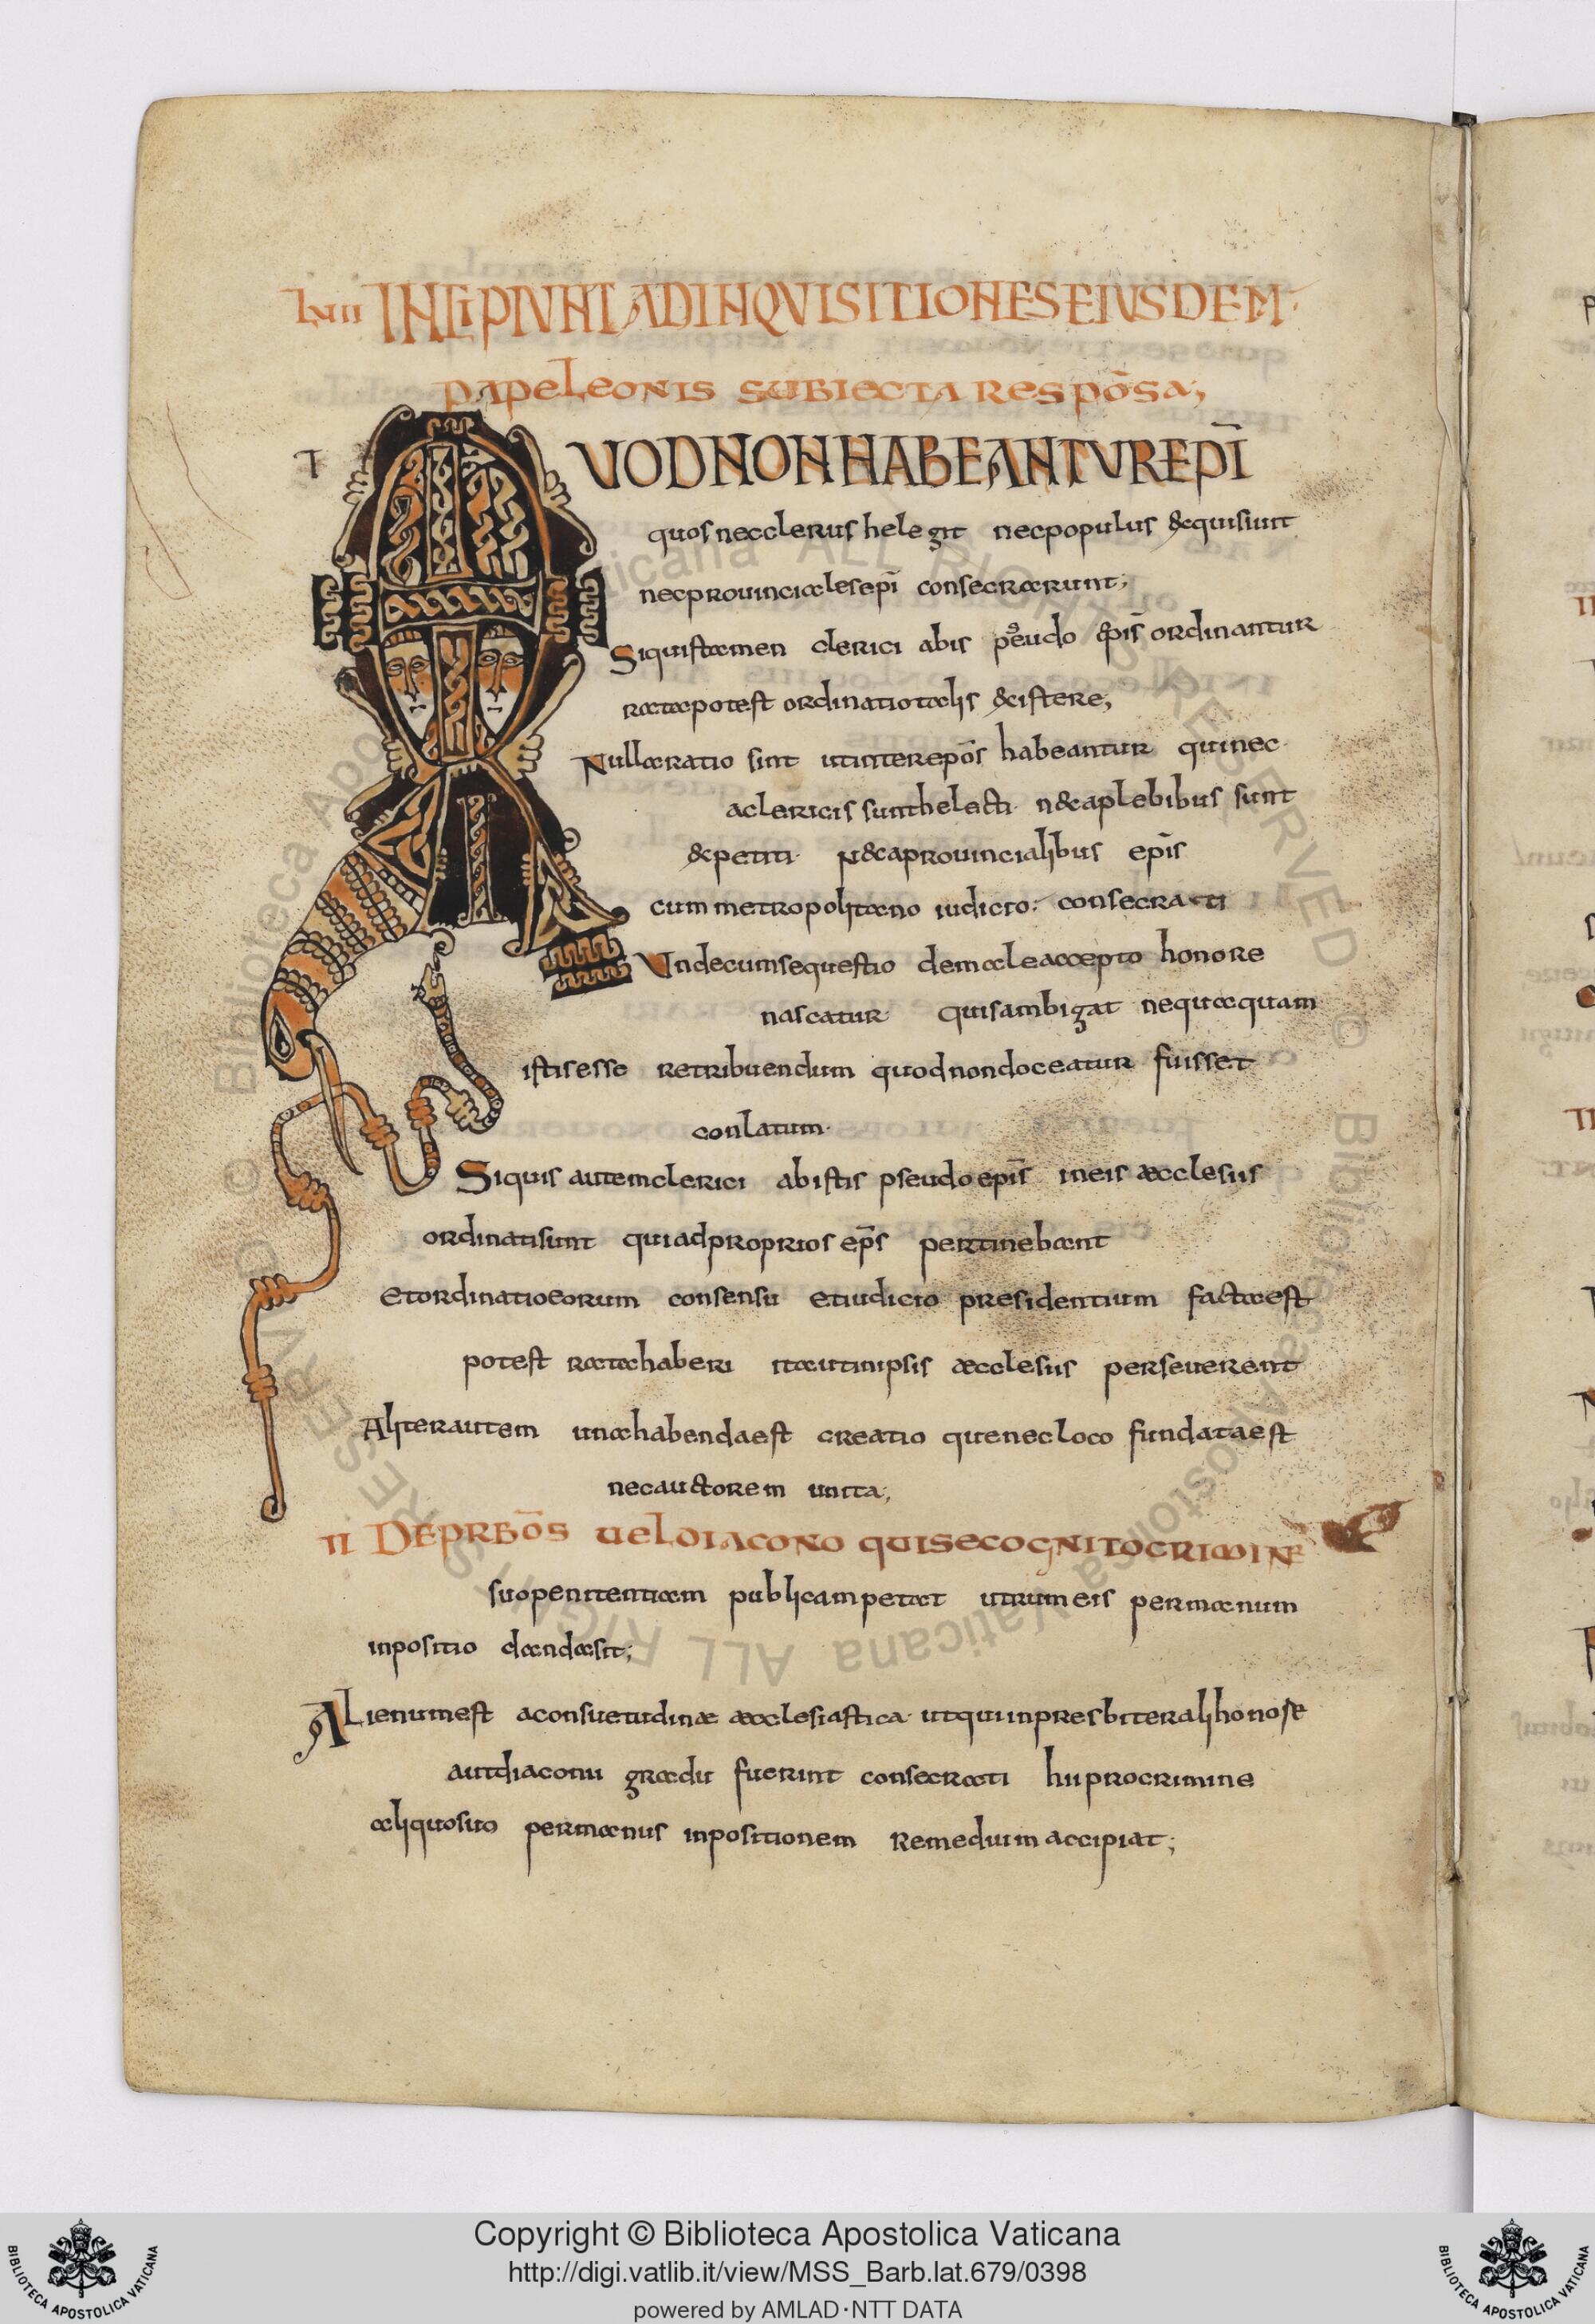 LVII INCIPIUNT AD INQVISITIONES EIVSDEM·
PAPE LEONIS SUBIECTA RESPŌSA;
I QVOD NON HABEANTVR EPĪ
quos nec clerus helegit nec populus &cquisiuit
nec prouinciales epī consecrarunt;
Si quis tamen clerici ab is pseudo epīs ordinantur
rata potest ordinatio talis &cistere;
Nulla ratio sint ut inter epōs habeantur qui nec
a clericis sunt helecti· n&c a plebibus sunt
&cpetiti· N&c a prouincialibus epīs
cum metropolitano iudicio: consecrati
Unde cum sequestio de male accepto honore
nascatur· quis ambigat nequaquam
istis esse retribuendum quod non doceatur fuisset
conlatum·
Si quis autem clerici ab istis pseudo epīs in eis æcclesiis
ordinati sunt qui ad proprios ep̄s pertinebant
et ordinatio eorum consensu et iudicio presidentium facta est
potest rata haberi ita ut in ipsis æcclesiis perseuerent
Aliter autem una habenda est creatio que nec loco fundata est
nec auctorem unita;
II DE PRBŌS UEL DIACONO QUI SE COGNITO CRIMINE
suo penitentiam publicam petat utrum eis per manum
inpositio danda sit;
Alienum est a consuetudinæ æcclesiastica· ut qui in presbiterali honore
aut diaconii gradu fuerint consecrati hii pro crimine
aliquo suo per manus inpositionem remedium accipiat;
Copyright © Biblioteca Apostolica Vaticana
http://digi.vatlib.it/view/MSS_Barb.lat.679/0398
powered by AMLAD·NTT DATA
BIBLIOTECA APOSTOLICA VATICANA
BIBLIOTECA APOSTOLICA VATICANA